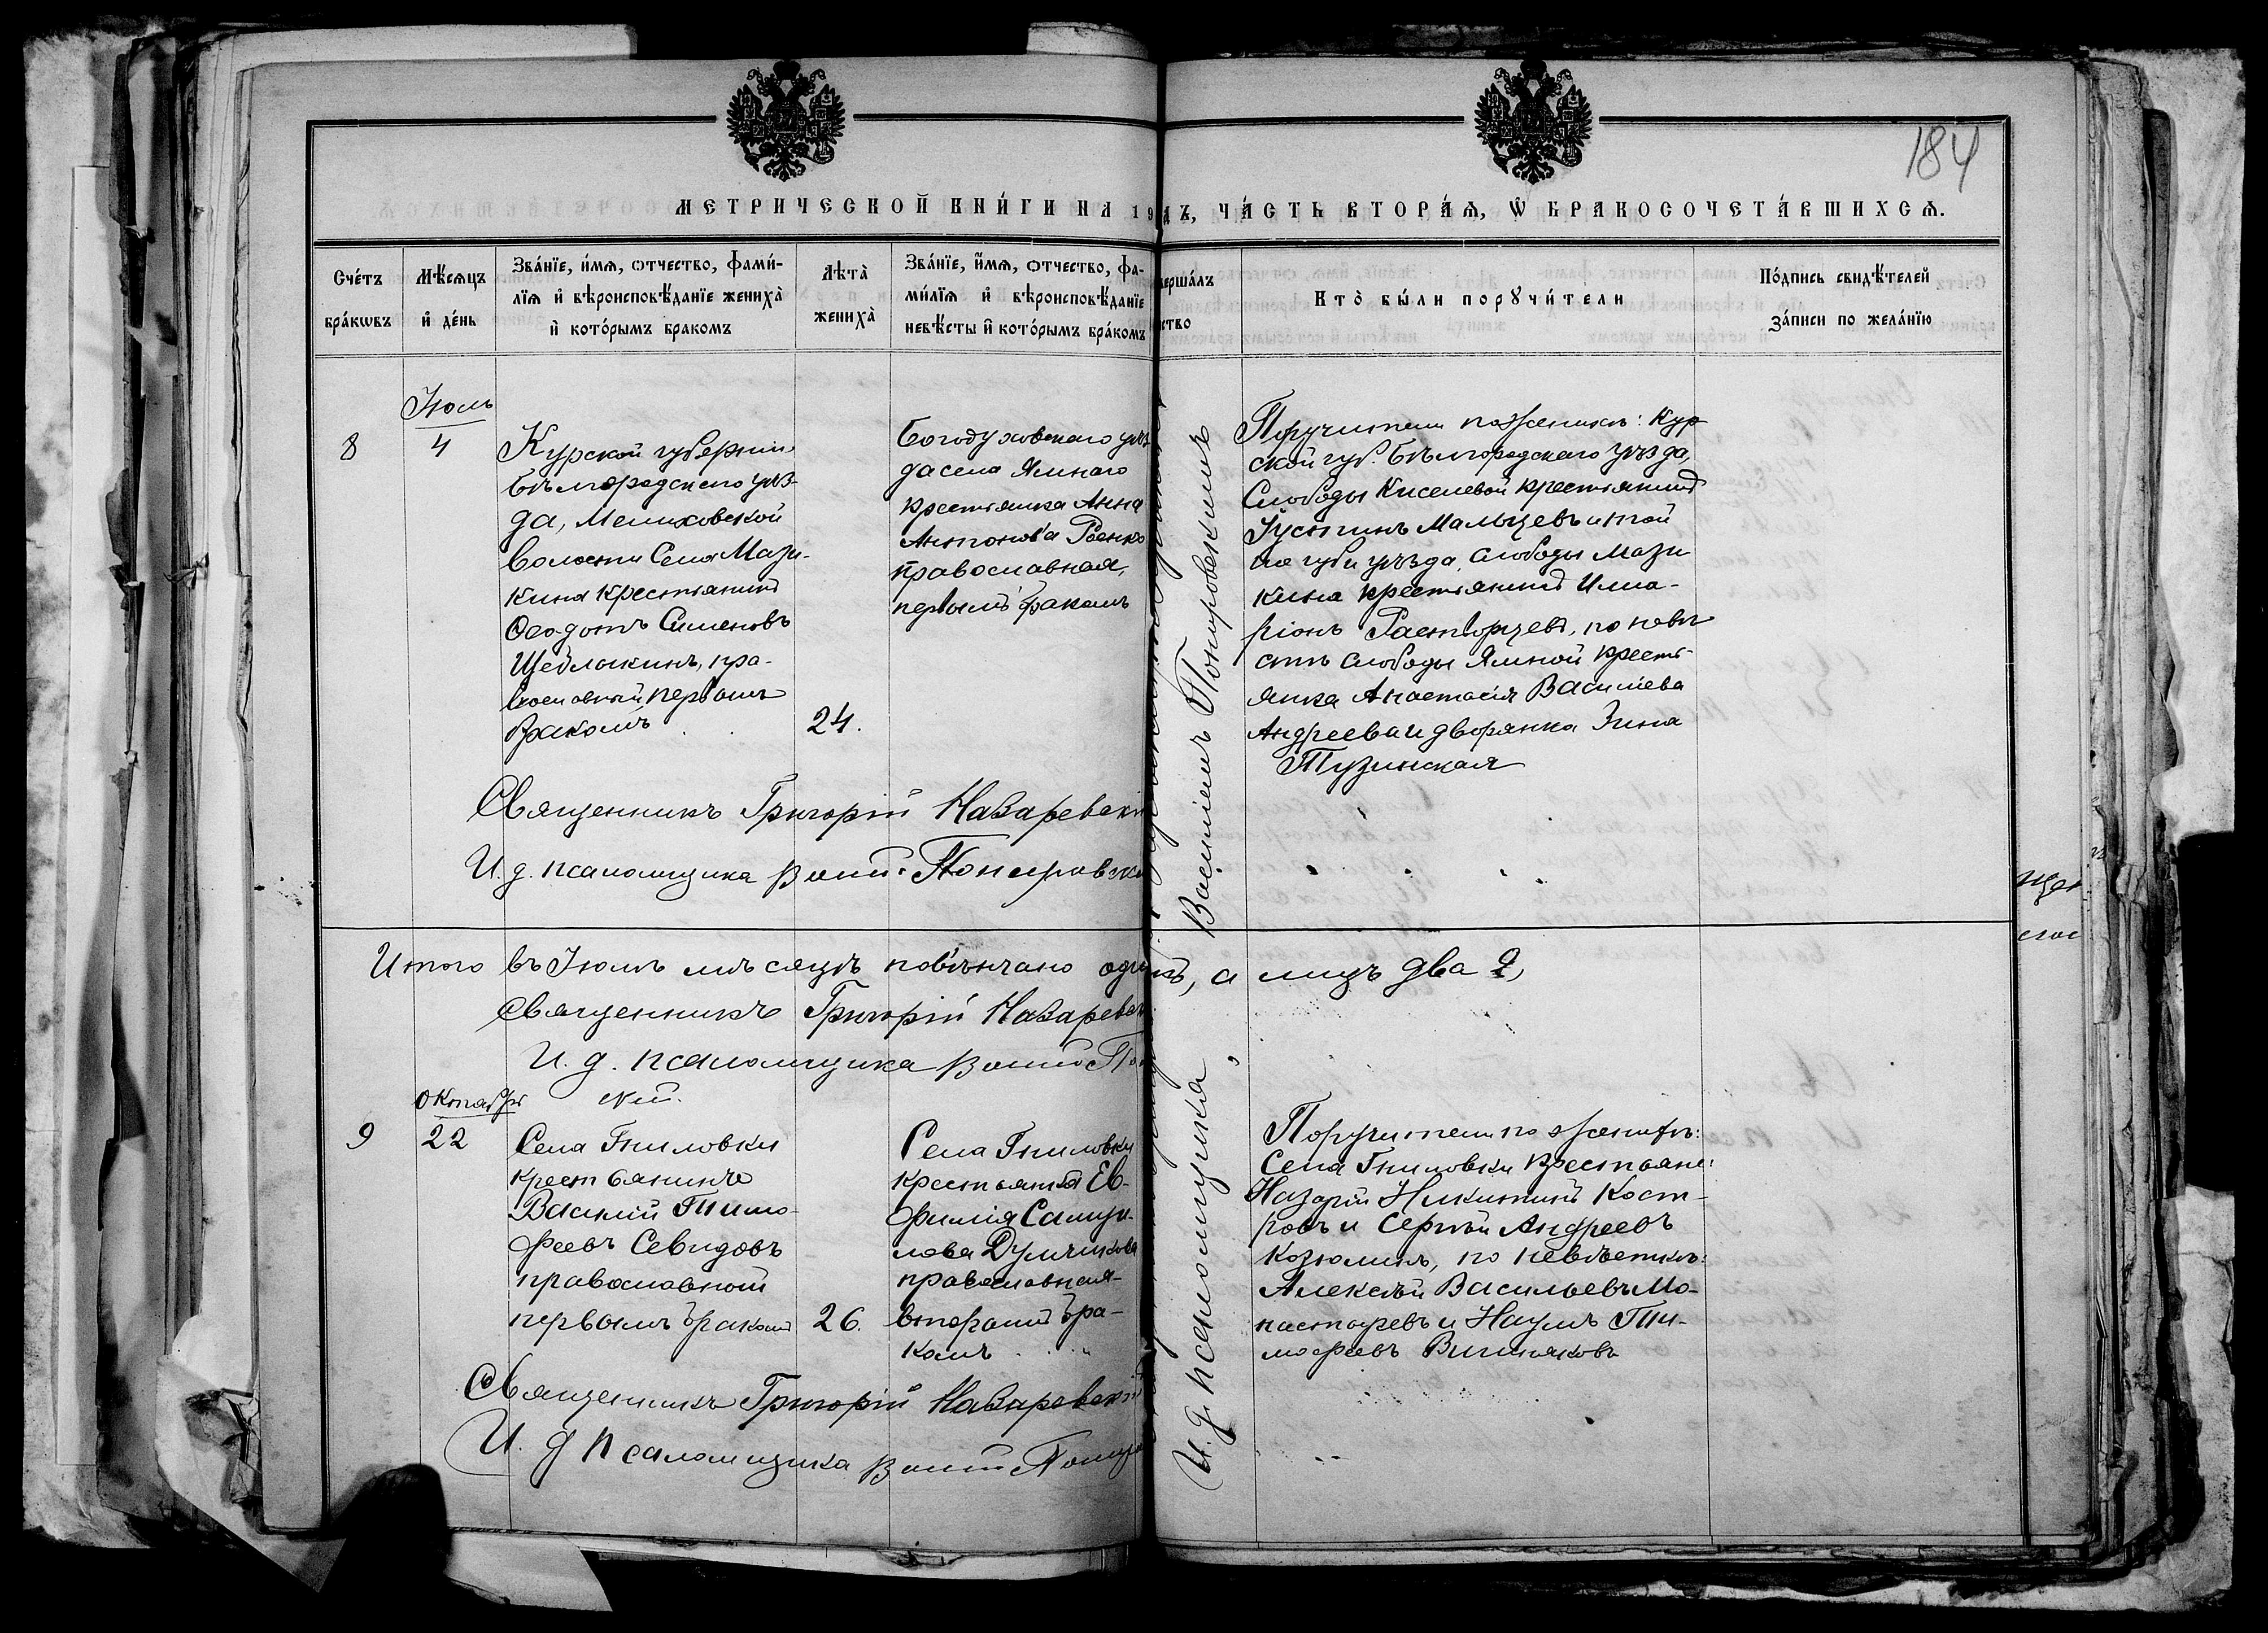 184
МЕТРИЧЕСКОЙ КНИ́ГИ НА 19
ДЪ, ЧА́СТЬ ВТОРА́Ѧ, Ѡ҆ БРАКОСОЧЕТА́ВШИХСѦ.
Сче́тъ
бра́кѡвъ
Мѣ́сѧцъ
и҆ де́нь
Зва́нїе, и҆́мѧ, ѻтчество, фами́-
лїѧ и҆ вѣроисповѣ́данїе жениха̀
и҆ кото́рымъ бракомъ
Лѣта̀
жениха̀
Зва́нїе, и҆́мѧ, ѻтчество, фа-
ми́лїѧ и҆ вѣроисповѣ́данїе
невѣ́сты и҆ кото́рымъ бра́комъ
верша́лъ
ство
Кто̀ бы́ли порꙋчи́тели
По́дпись свидѣ́телей
за́писи по жела́нїю
Іюль
8
4
Курской губерніи
Бѣлгородскаго уѣз-
да, Мелиховской
волости Села Мази-
кина крестьянинъ
Ѳеодотъ Симеоновъ
Щеблыкинъ, пра-
вославный первымъ
бракомъ
24.
Богодуховскаго уѣз
да села Ямнаго
крестьянка Анна
Антонова Раенко
православная,
первымъ бракомъ
Поручители по женихѣ: Кур-
ской губ. Бѣлгородскаго уѣзда,
Слободы Киселевой крестьянинъ
Іустинъ Мальцевъ и той
же губ и уѣзда, слободы Мази
кина крестьянинъ Илла-
ріонъ Расторцевъ, по невѣ
стѣ слободы Ямной кресть-
янка Анастасія Василіева
Андреева и дворянка Зина
Тузинская
Священникъ Григорій Назаревскій
И. д. псаломщика Василій Покировскій
Итого въ Іюлѣ мѣсяцѣ повѣнчано одинъ, а лицъ два 2,
Священникъ Григорій Назаревск
И. д. псаломщика Василій По
скій.
Октябрь
9
22
Села Гниловки
крестьянинъ
Василій Тимо-
феевъ Севидовъ
православной
первымъ бракомъ
26.
Села Гниловки
крестьянка Ев-
фимія Самуи-
лова Думчикова
православная
вторымъ бра-
комъ
Поручители по женихѣ:
Села Гниловки крестьяне:
Назарій Никитинъ Кост-
ровъ и Сергѣй Андреевъ
Козюлинъ, по невѣстѣ:
Алексѣй Васильевъ Мо-
настыревъ и Наумъ Ти-
мофеевъ Вишняковъ
Священникъ Григорій Назаревскій
И. д псаломщика Василій Покиров
И. д. псаломщика Василій Покировскій